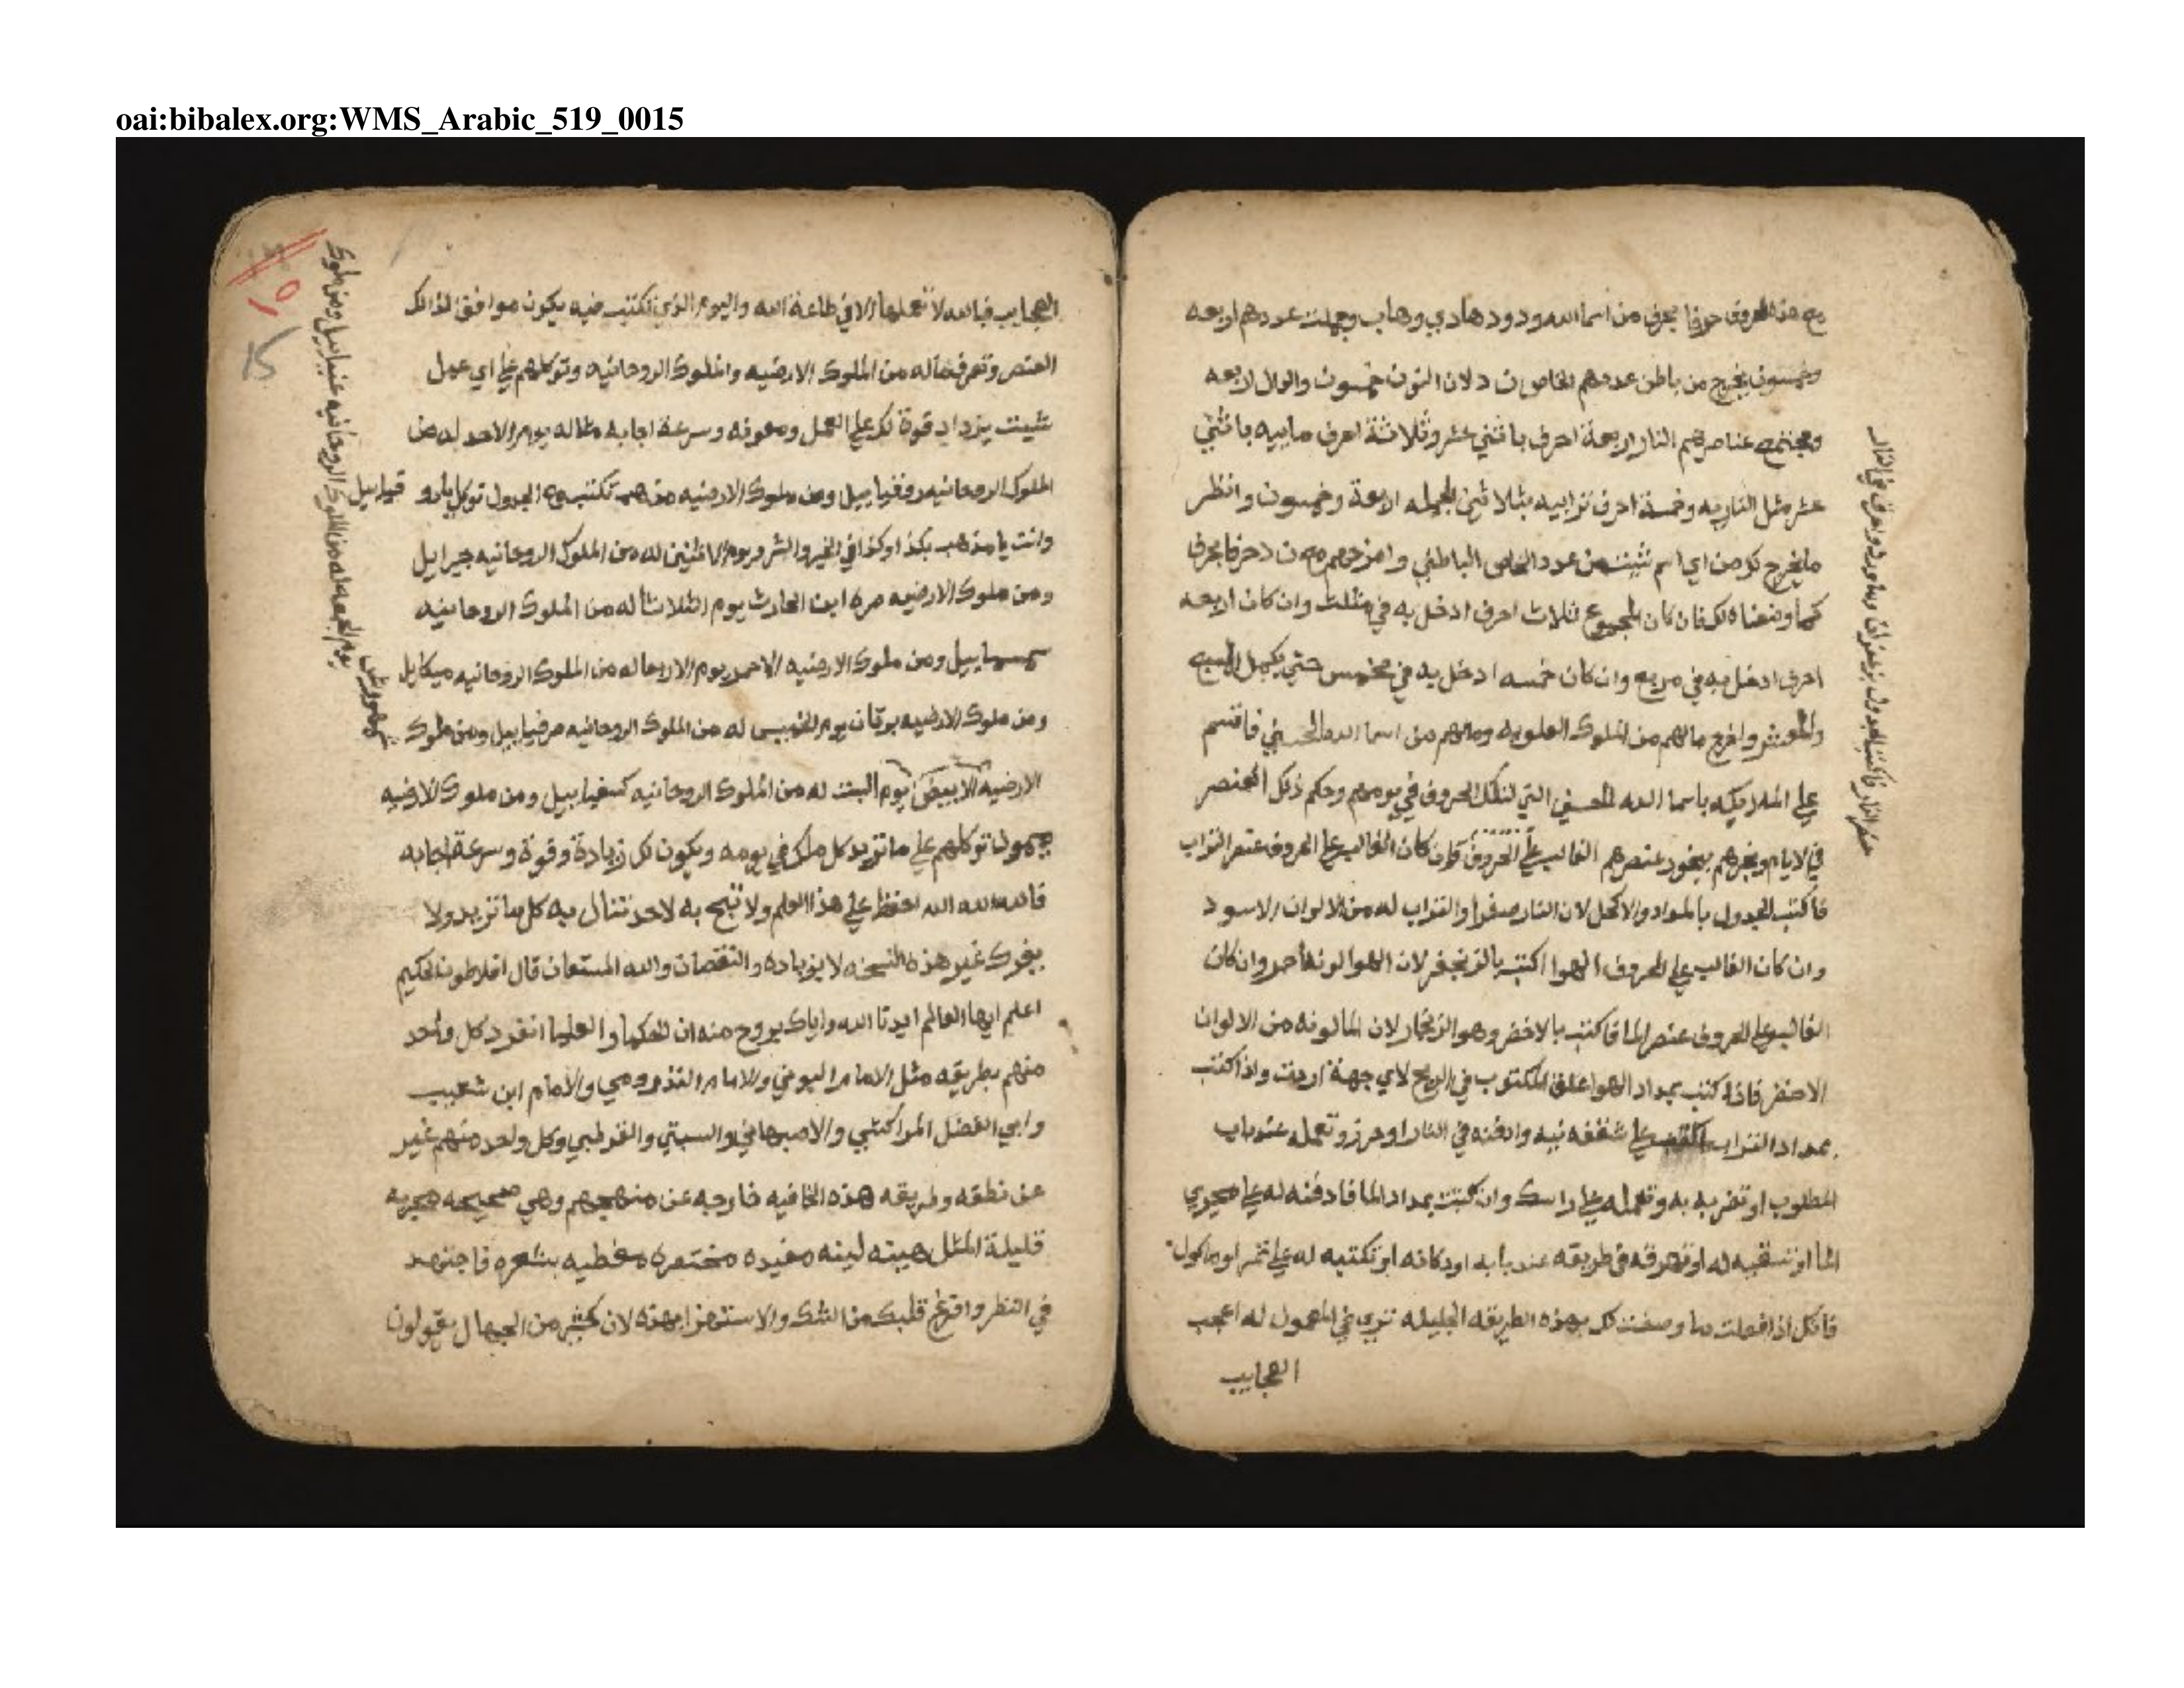 oai:bibalex.org:WMS_Arabic_519_0015
مع هذه الحروف حرفا بحرف من اسما الله ودود هادي وهاب وجملت عددهم اربعه
وخمسون يخرج من باطن عددهم الخاص ن د لان النون خمسون والدال لاربعه
ومجتمع عناصرهم النار اربعة احرف باثني عشر وثلاثة احرف ماييه باثني
عشر مثل الناريه وخمسة احرف ترابيه بثلاثين الجمله اربعة وخمسون وانظر
ما يخرج لك من اي اسم شيت من عدد الخاص الباطني وامزجهم مع ن د حرفا بحرف
كما وضعناه لك فان كان المجموع ثلاث احرف ادخل به في مثلث وان كان اربعه
احرف ادخل به في مربع وان كان خمسه ادخل به في مخمس حتي يكمل المسبع
والمعشر واخرج مالهم من الملوك العلويه ومالهم من اسما الله الحسني فاقسم
علي الملايكه باسما الله الحسني التي لتلك الحروف في يومهم وحكم ذلك العنصر
في الايام وبخرهم ببخور عنصرهم الغالب علي الحروف فان كان الغالب علي الحروف عنصر التراب
فاكتب الجدول بالمداد والاكحل لان النار صفرا والتراب له من الالوان الاسود
وان كان الغالب علي الحروف الهوا اكتب بالزنجفر لان الهوا لونه احمر وان كان
الغالب علي الحروف عنصر الما فاكتب بالاخضر وهو الزنجار لان الما لونه من الالوان
الاخضر فاذا كتبت بمداد الهوا علق المكتوب في الريح لاي جهة اردت واذا كتبت
بمداد التراب علي شقفه نيه وادفنه في النار او حرز وتعمله عند باب
المطلوب او تضربه به وتحمله علي راسك وان كتبت بمداد الما فادفنه له علي مجري
الما او تسقيه له او تهرقه في طريقه عند بابه او دكانه او تكتبه له علي تمر او ماكول
فانك اذا فعلت ما وصفت لك بهذه الطريقه الجليله تري في المعمول له اعجب
العجايب
عنصر النار فاكتب الجدول بزعفران وماورد واحرق في النار
١٥
15
العجايب فبالله لا تعملها الا في طاعة الله واليوم الذي تكتب فيه يكون موافق لذالك
العنصر وتعرف ماله من الملوك الارضيه والملوك الروحانيه وتوكلهم علي اي عمل
شيت يزداد قوة لك علي العمل ومعونه وسرعة اجابه مثاله يوم الاحد له من
الملوك الروحانيه روقيابيل ومن ملوك الارضيه مذهب تكتب مع الجدول توكل يا روقيابيل
وانت يا مذهب بكذا وكذا في الخير والشر ويوم الاثنين له من الملوك الروحانيه جبرايل
ومن ملوك الارضيه مره ابن الحارث يوم الثلاثا له من الملوك الروحانيه
سمسماييل ومن ملوك الارضيه الاحمر يوم الاربعا له من الملوك الروحانيه ميكايل
ومن ملوك الارضيه برقان يوم الخميس له من الملوك الروحانيه صرفياييل ومن ملوك
شمهورش
يوم الجمعه له من الملوك الروحانيه عنياييل ومن ملوك
الارضيه الابيض يوم السبت له من الملوك الروحانيه كسفياييل ومن ملوك الارضيه
ميمون توكلهم علي ما تريد كل ملك في يومه ويكون لك زيادة وقوة وسرعة اجابه
فالله الله الله احفظ علي هذا العلم ولا تبح به لاحد تنال به كل ما تريد ولا
يغرك غير هذه النسخه لا بزياده والنقصان والله المستعان قال افلاطون الحكيم
اعلم ايها العالم ايدنا الله واياك بروح منه ان الحكما والعلما انفرد كل واحد
منهم بطريقه مثل الامام البوني والامام التذرومي والامام ابن شعيب
وابي الفضل المراكشي والاصبهاني والسبتي والقرطبي وكل واحد منهم غير
عن نطقه وطريقه هذه الخافيه خارجه عن منهجهم وهي صحيحه مجربه
قليلة المثل هينه لينه مفيده مختصره مغطيه بشعره فاجتهد
في النظر وافرغ قلبك من الشك والاستهزا بهذه لان كثير من الجهال يقولون